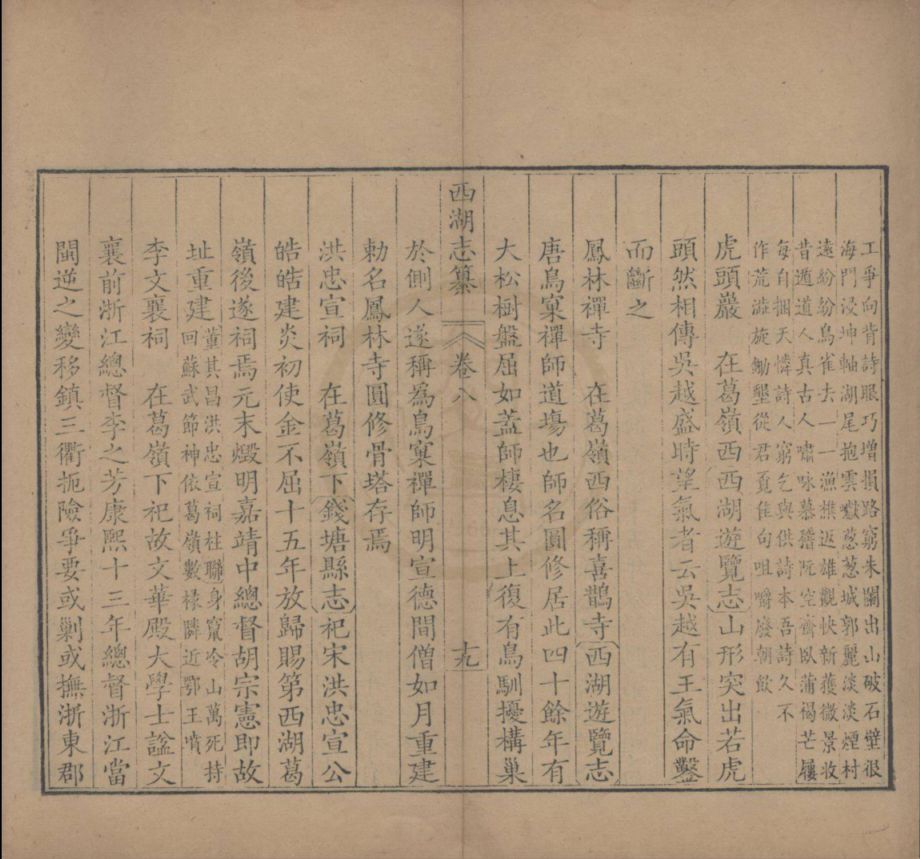 工爭向背詩眼巧增損路窮朱闌出山破石壁很
海門浸坤軸湖尾抱雲巘蔥蔥城郭麗淡淡煙村
遠紛紛鳥雀去一一漁樵返雄觀快新獲微景收
昔遁道人真古人嘯咏慕嵇阮空齋臥蒲褐芒屨
每自捆天憐詩人窮乞與供詩本吾詩久不
作荒澁旋鋤墾從君覓佳句咀嚼廢朝飯
虎頭巖　在葛嶺西西湖遊覽志山形突出若虎
頭然相傳吳越盛時望氣者云吳越有王氣命鑿
而斷之
鳳林禪寺　在葛嶺西俗稱喜鵲寺西湖遊覽志
唐鳥窠禪師道場也師名圓修居此四十餘年有
大松樹盤屈如蓋師棲息其上復有鳥馴擾構巢
西湖志纂　卷八　十九
於側人遂稱爲鳥窠禪師明宣德間僧如月重建
勅名鳳林寺圓修骨塔存焉
洪忠宣祠　在葛嶺下錢塘縣志祀宋洪忠宣公
皓皓建炎初使金不屈十五年放歸賜第西湖葛
嶺後遂祠焉元末燬明嘉靖中總督胡宗憲即故
址重建董其昌洪忠宣祠柱聯身竄冷山萬死持
回蘇武節神依葛嶺數椽隣近鄂王墳
李文襄祠　在葛嶺下祀故文華殿大學士諡文
襄前浙江總督李之芳康熙十三年總督浙江當
閩逆之變移鎮三衢扼險爭要或剿或撫浙東郡